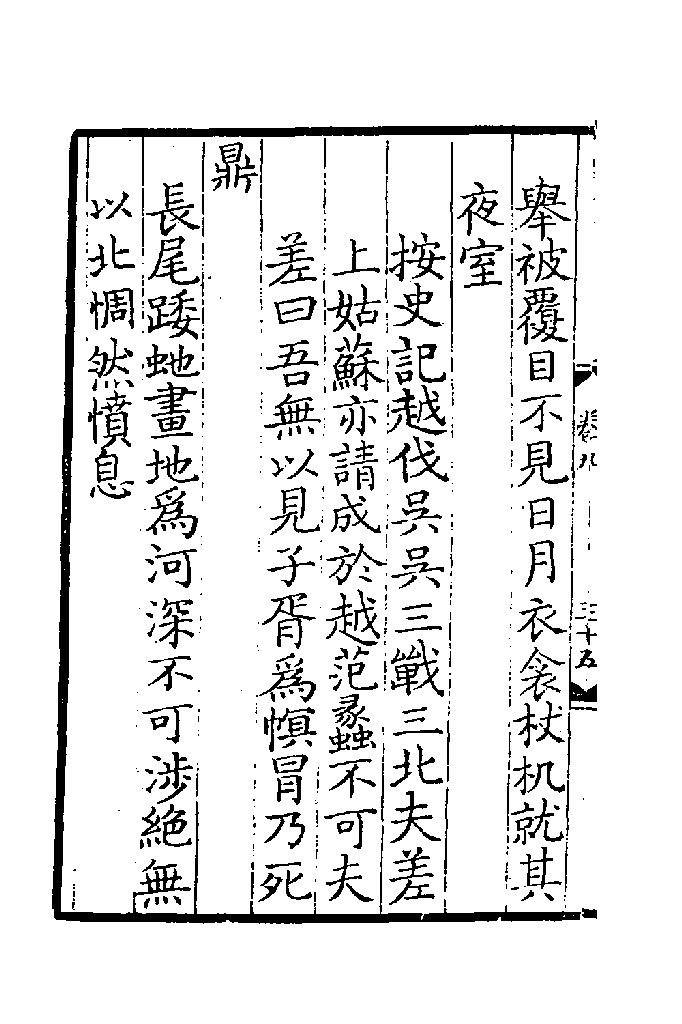 舉被覆目不見日月衣衾杖机就其
夜室
按史記越伐吳吳三戰三北夫差
上姑蘇亦請成於越范蠡不可夫
差曰吾無以見子胥爲幎冒乃死
鼎
長尾踒虵畫地爲河深不可涉絶無
以北惆然憤息
卷九
三十五